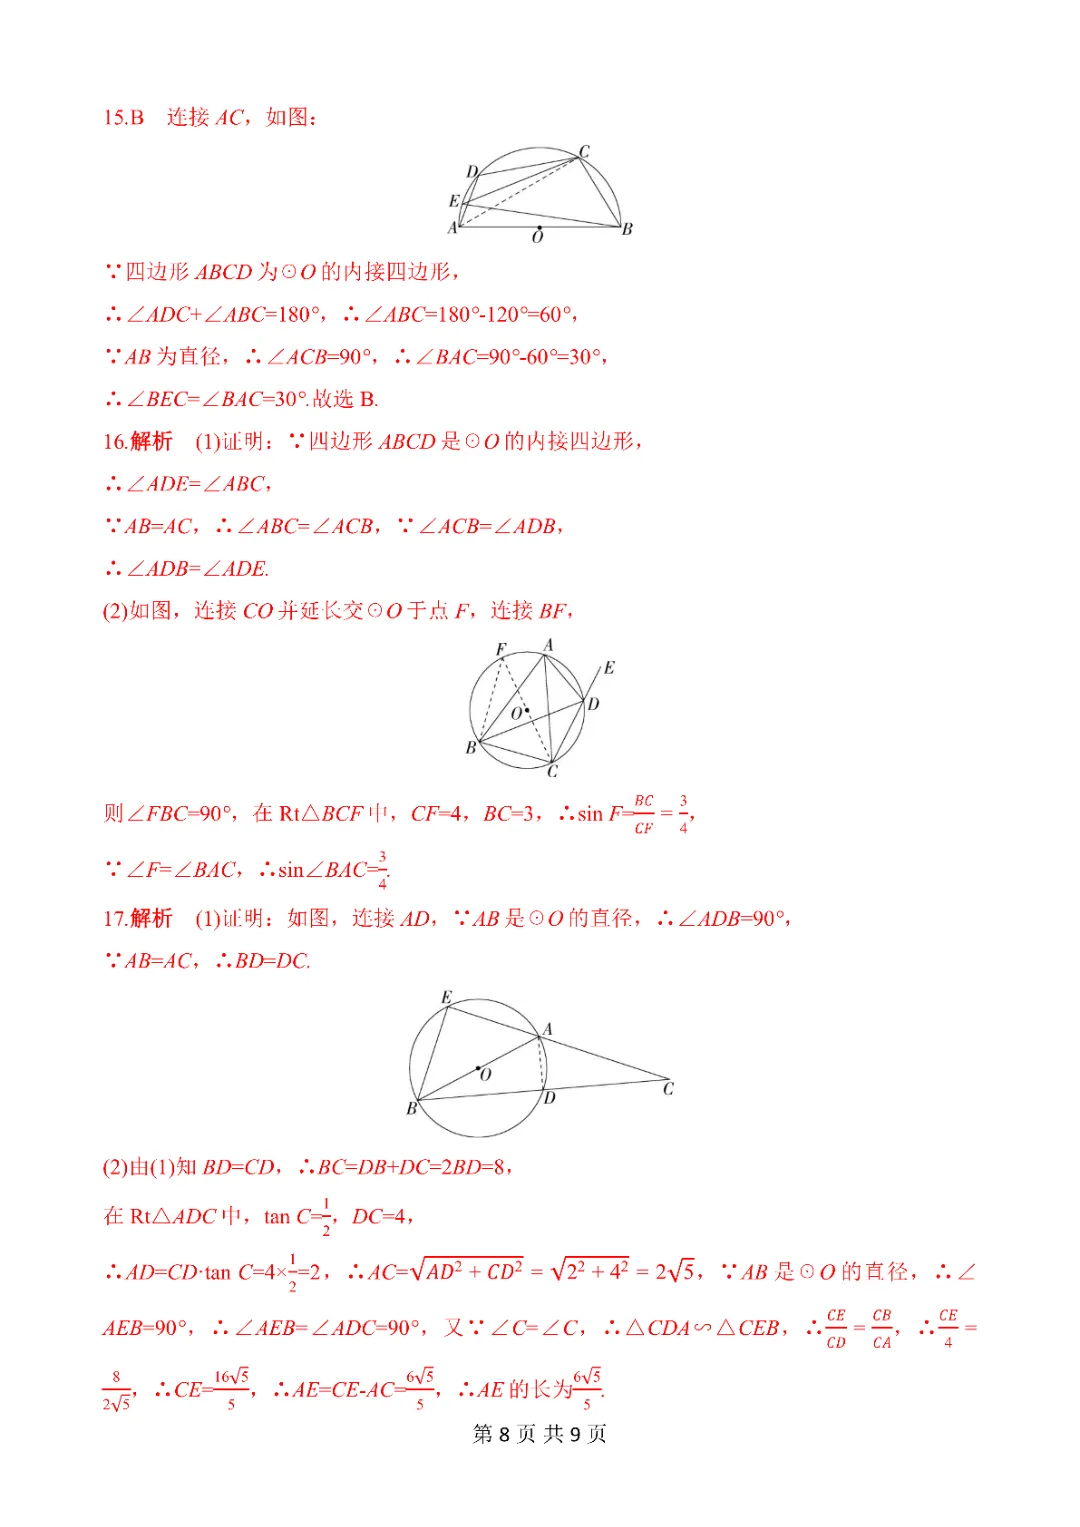 15.B 连接 AC，如图：
D
C
E
A
O
B
∵四边形 ABCD 为⊙O 的内接四边形，
∴∠ADC+∠ABC=180°，∴∠ABC=180°-120°=60°，
∵AB 为直径，∴∠ACB=90°，∴∠BAC=90°-60°=30°，
∴∠BEC=∠BAC=30°.故选 B.
16.解析 (1)证明：∵四边形 ABCD 是⊙O 的内接四边形，
∴∠ADE=∠ABC，
∵AB=AC，∴∠ABC=∠ACB，∵∠ACB=∠ADB，
∴∠ADB=∠ADE.
(2)如图，连接 CO 并延长交⊙O 于点 F，连接 BF，
F
A
E
D
O
B
C
则∠FBC=90°，在 Rt△BCF 中，CF=4，BC=3，∴sin F=BC/CF=3/4，
∵∠F=∠BAC，∴sin∠BAC=3/4.
17.解析 (1)证明：如图，连接 AD，∵AB 是⊙O 的直径，∴∠ADB=90°，
∵AB=AC，∴BD=DC.
E
A
O
C
D
B
(2)由(1)知 BD=CD，∴BC=DB+DC=2BD=8，
在 Rt△ADC 中，tan C=1/2，DC=4，
∴AD=CD·tan C=4×1/2=2，∴AC=√(AD²+CD²)=√(2²+4²)=2√5，∵AB 是⊙O 的直径，∴∠
AEB=90°，∴∠AEB=∠ADC=90°，又∵∠C=∠C，∴△CDA∽△CEB，∴CE/CD=CB/CA，∴CE/4=
8/2√5，∴CE=16√5/5，∴AE=CE-AC=6√5/5，∴AE 的长为6√5/5.
第 8 页 共 9 页